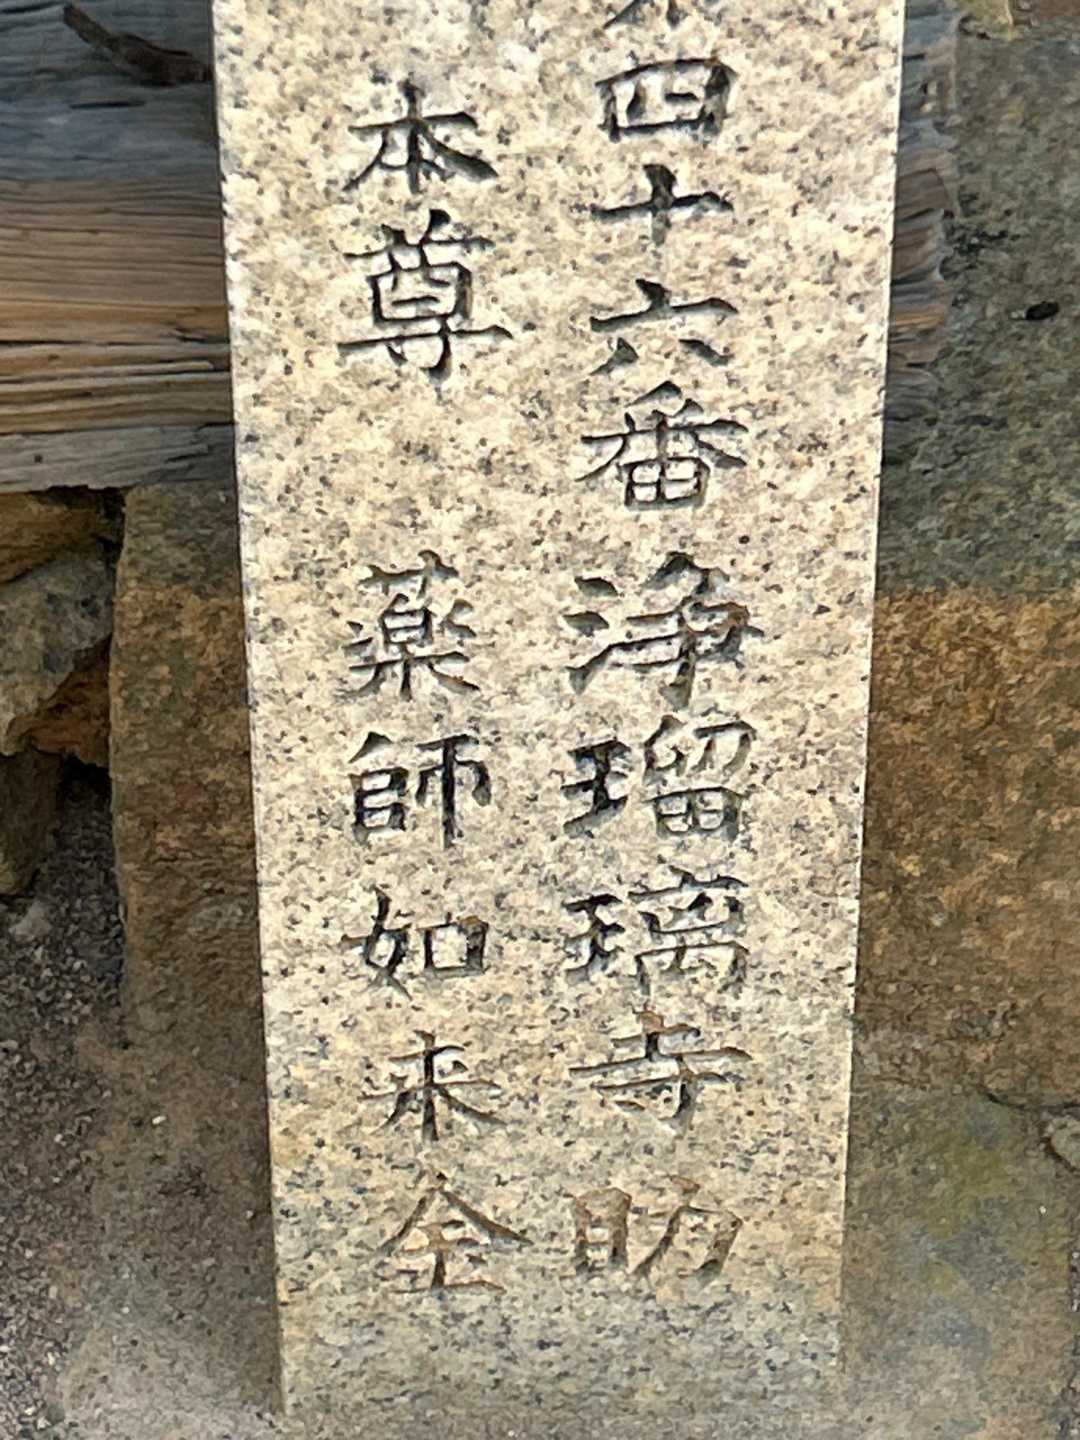 四十六番 浄瑠璃寺 助
本尊 薬師如来 全